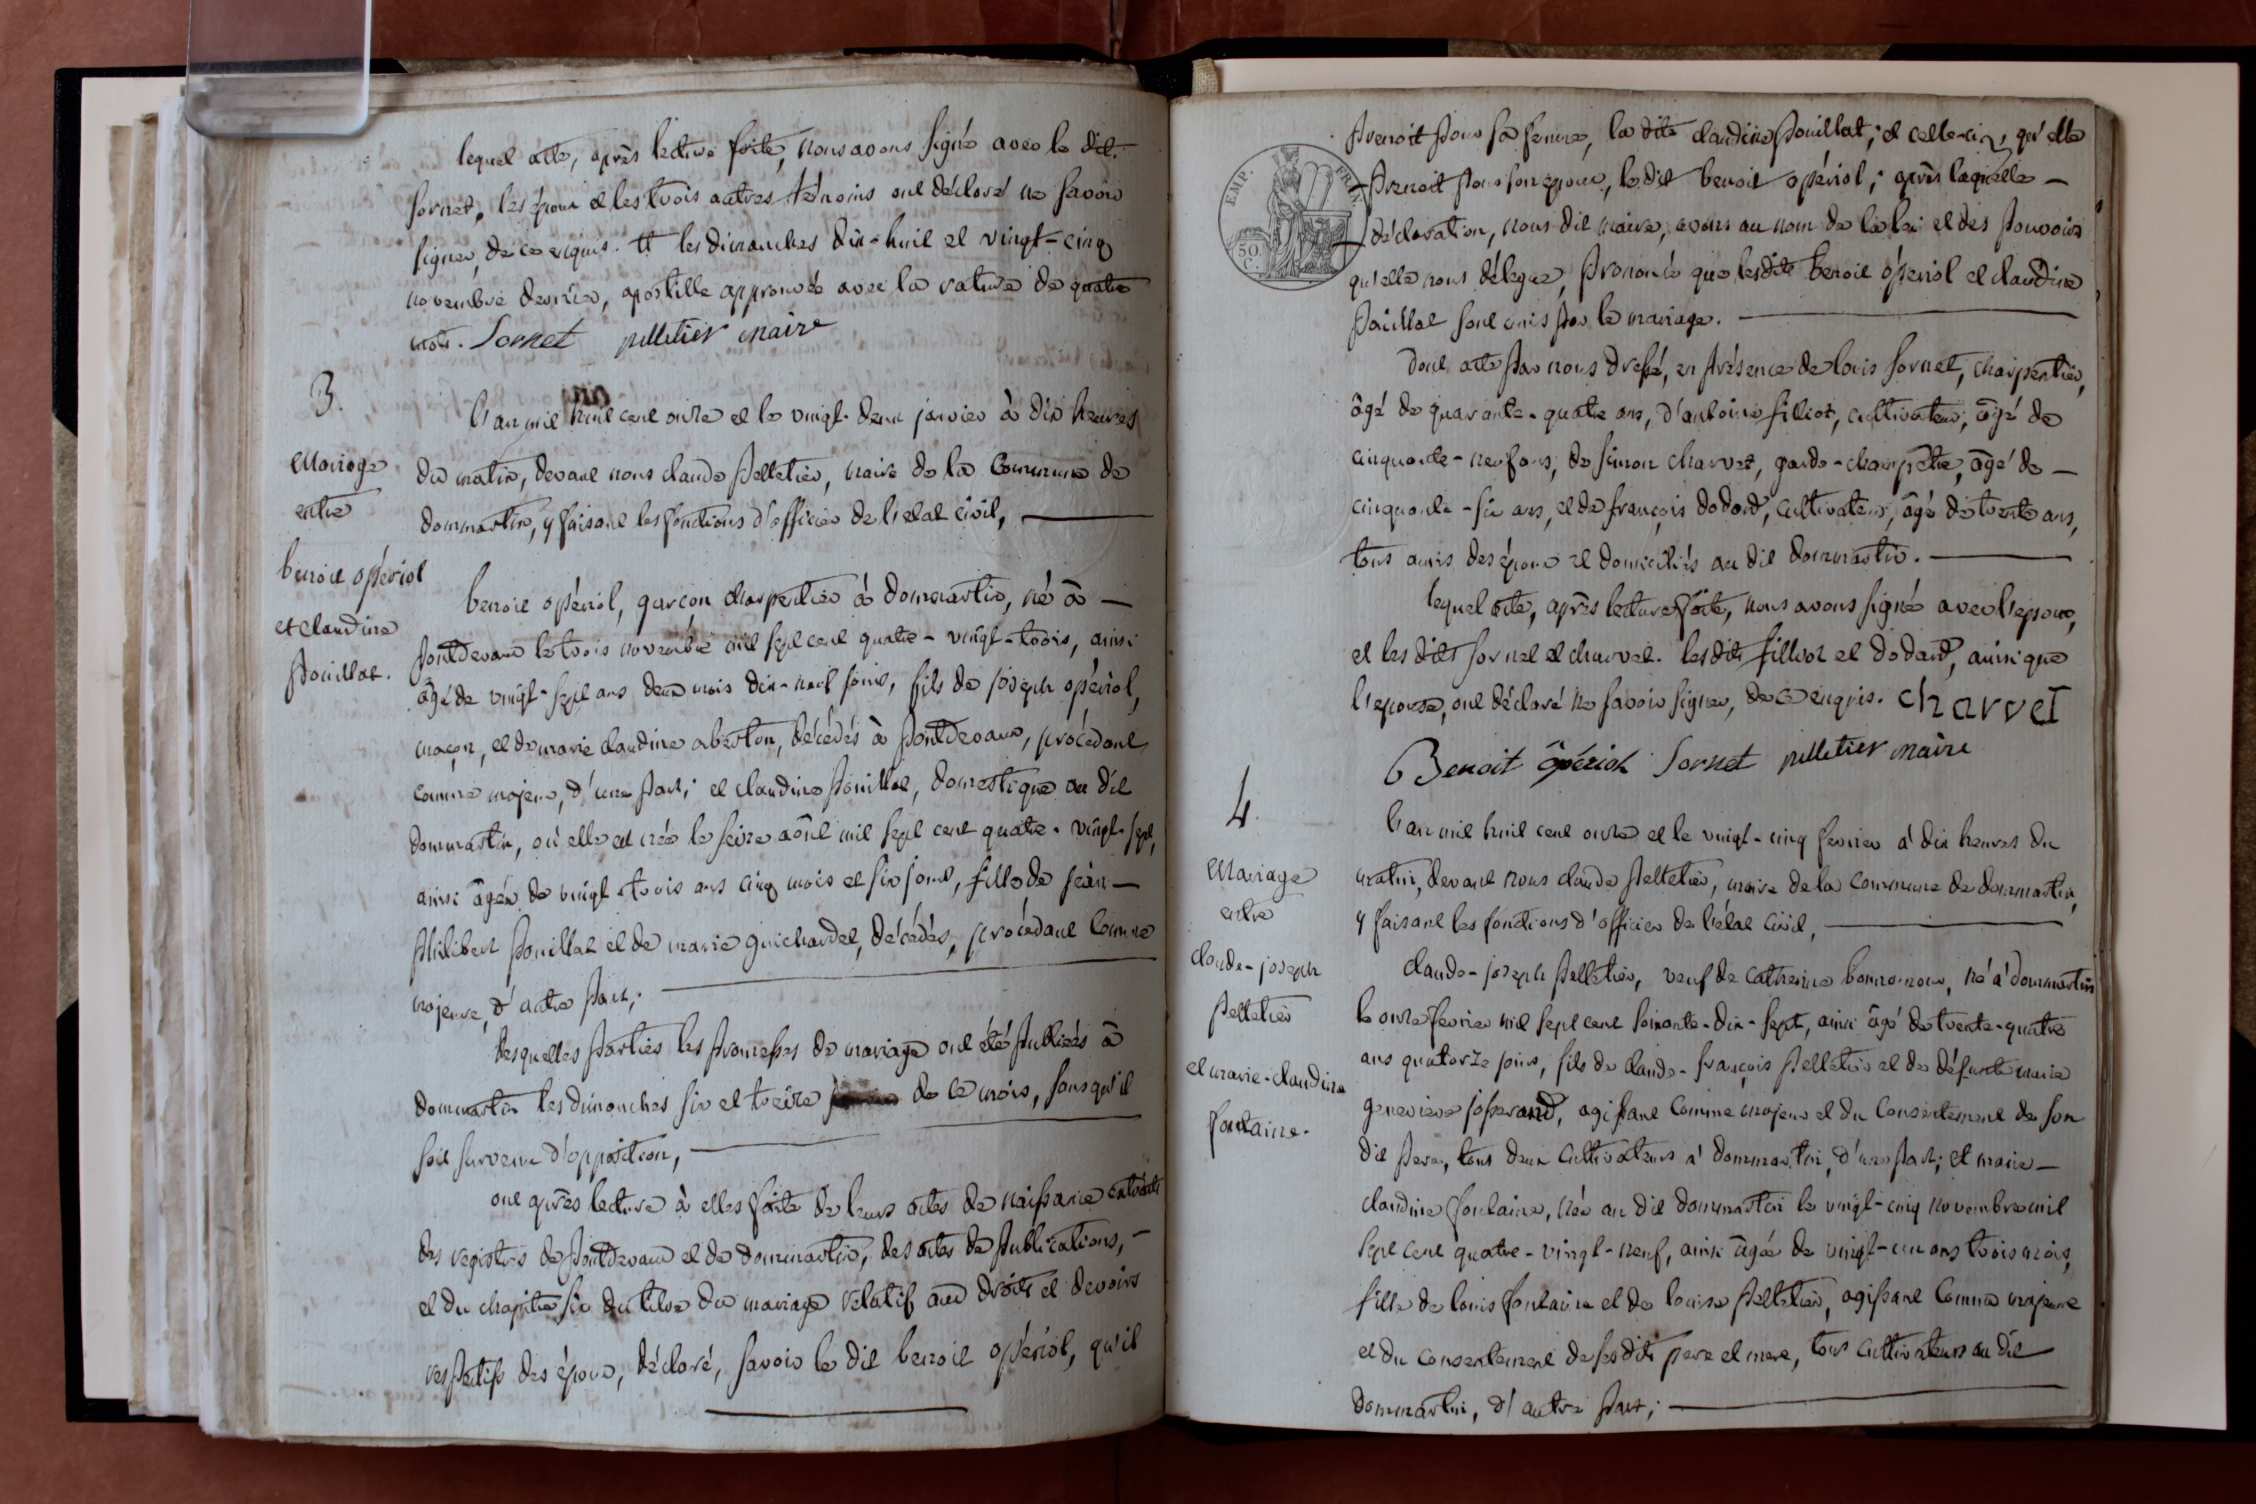 lequel acte, après lecture faite, nous avons signé avec le dit
sornet, les époux et les trois autres témoins ont déclaré ne savoir
signer, de ce enquis. # les dimanches dix-huit et vingt-cinq
novembre dernier, apostille approuvée avec la rature de quatre
mots. Sornet pelletier maire
3.
Mariage
entre
benoit opériol
et claudine
pouillat.
l'an mil huit cent onze et le vingt-deux janvier à dix heures
du matin, devant nous claude pelletier, maire de la commune de
dommartin, y faisant les fonctions d'officier de l'etat civil,
benoit opériol, garçon charpentier à dommartin, né à
pontdevaux le trois novembre mil sept cent quatre-vingt-trois, ainsi
âgé de vingt-sept ans deux mois dix-neuf jours, fils de joseph opériol,
maçon, et de marie claudine aberton, décédés à pontdevaux, procédant
comme majeur, d'une part; et claudine pouillat, domestique au dit
dommartin, où elle est née le seize août mil sept cent quatre-vingt-sept,
ainsi âgée de vingt-trois ans cinq mois et six jours, fille de jean
philibert pouillat et de marie guichardet, décédés, procédant comme
majeure, d'autre part;
desquelles parties les promesses de mariage ont été publiées à
dommartin les dimanches six et treize de ce mois, sans qu'il
soit survenu d'opposition,
ont après lecture à elles faite de leurs actes de naissance extraits
des registres de pontdevaux et de dommartin, des actes de publications,
et du chapitre six du titre du mariage relatif aux droits et devoirs
respectifs des époux, déclaré, savoir le dit benoit opériol, qu'il
EMP. FRAN.
50 C.
prenoit pour sa femme, la dite claudine pouillat; et celle-ci, qu'elle
prenoit pour son époux, le dit benoit opériol; après laquelle
déclaration, nous dit maire, avons au nom de la loi et des pouvoirs
qu'elle nous délegue, prononcé que lesdits benoit opériol et claudine
pouillat sont unis par le mariage.
dont acte par nous dressé, en présence de louis sornet, charpentier,
âgé de quarante-quatre ans, d'antoine filliot, cultivateur, âgé de
cinquante-neuf ans, de simon charvet, garde-champêtre, âgé de
cinquante-six ans, et de françois dodard, cultivateur, âgé de trente ans,
tous amis des époux et domiciliés au dit dommartin.
lequel acte, après lecture faite, nous avons signé avec l'epoux,
et les dits sornet et charvet. lesdits filliot et dodard, ainsi que
l'epouse, ont déclaré ne savoir signer, de ce enquis. charvet
Benoit opériol Sornet pelletier maire
4.
Mariage
entre
claude-joseph
pelletier
et marie-claudine
fontaine.
l'an mil huit cent onze et le vingt-cinq fevrier à dix heures du
matin, devant nous claude pelletier, maire de la commune de dommartin,
y faisant les fonctions d'officier de l'état civil,
claude-joseph pelletier, veuf de catherine bonnamour, né à dommartin
le onze fevrier mil sept cent soixante-dix-sept, ainsi âgé de trente-quatre
ans quatorze jours, fils de claude-françois pelletier et de défunte marie
genevieve josserand, agissant comme majeur et du consentement de son
dit pere, tous deux cultivateurs à dommartin, d'une part; et marie
claudine fontaine, née au dit dommartin le vingt-cinq novembre mil
sept cent quatre-vingt-neuf, ainsi âgée de vingt-un ans trois mois,
fille de louis fontaine et de louise pelletier, agissant comme majeure
et du consentement de ses dits pere et mere, tous cultivateurs au dit
dommartin, d'autre part;